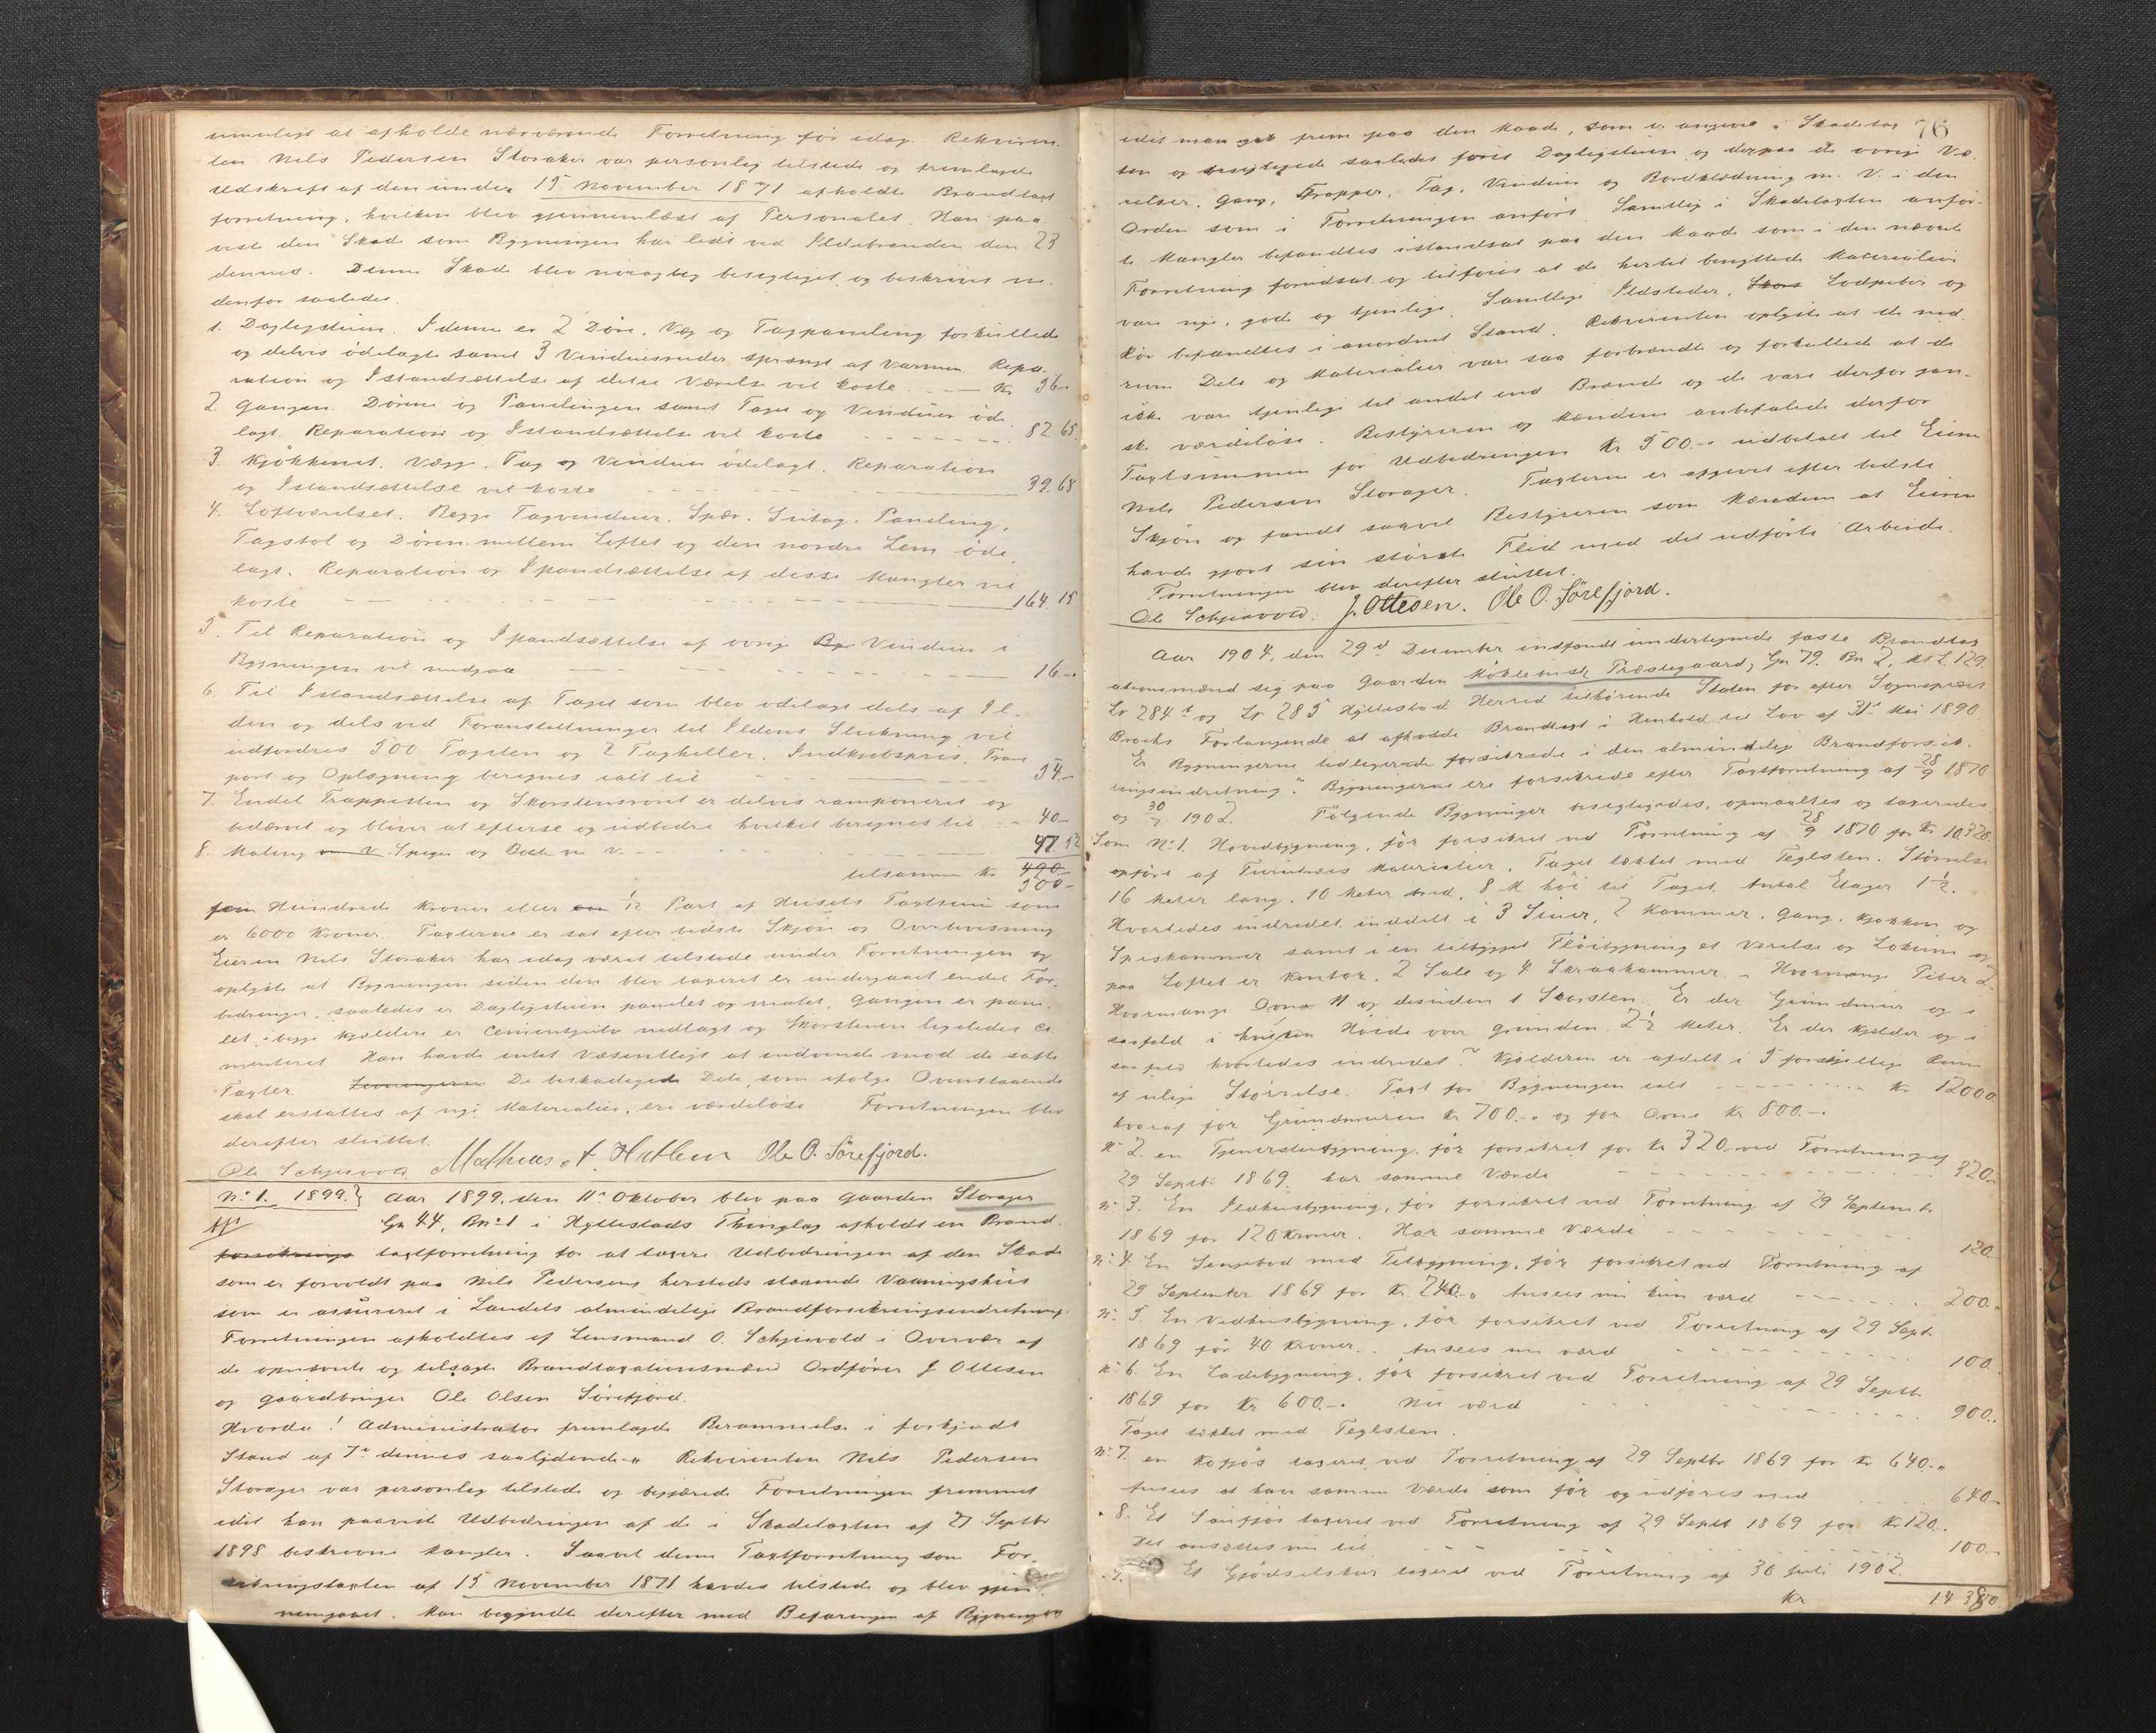 umuligt at afholde nærværende Forretning før idag. Rekviren-
ten Nils Pedersen Storaker var personlig tilstede og fremlagde
Udskrift af den under 15 November 1871 afholdte Brandtaxt
forretning, hvilken blev gjennemlæst af Personalet. Han paa
viste den Skade som Bygningen har lidt ved Ildebranden den 23
dennes. Denne Skade blev nöiagtig besigtiget og beskrives ne-
denfor saaledes.
1. Dagligstuen. I denne er 2 Döre, Væg og Tagpaneling forkullede
og delvis ödelagte samt 3 Vinduesruder sprængt af varmen. Repa-
ration og Istandsættelse af dette Værelse vil koste - Kr 96-
2. Gangen. Dörene og Panelingen samt Taget og Vinduer öde
lagt. Reparation og Istandsættelse vil koste - 82.65
3. Kjökkenet. Vægge, Tag og Vinduer ödelagt. Reparation
og Istandsættelse vil koste - 39.68
4. Loftværelset. Begge Tagvinduer, Spær, Sutag, Paneling,
Tagstol og Dören mellem Loftet og den nordre Lem öde
lagt. Reparation og Ipandsættelse af disse Mangler vil
koste - 164 15
5. Til Reparation og Ipandsættelse af övrige Vinduer i
Bygningen vil medgaa - 16.-
6. Til Istandsættelse af Taget som blev ödelagt dels af Il-
den og dels ved Foranstaltninger til Ildens Slukning vil
udfordres 500 Tagsten og 2 Tagheller. Indkjöbspris, Trans
port og Oplægning beregnes ialt til - 54.-
7. Endel Trappesten og Skorstensröret er delvis ramponeret og
bedærvet og bliver at efterse og udbedre hvilket beregnes til - 40-
8. Maling Spiger og Beslag m v. - 47.52
tilsammen Kr 490.-
500-
fem Hundrede Kroner eller 1/12 Part af Husets Taxtsum som
er 6000 Kroner. Taxterne er sat efter bedste Skjön og Overbevisning
Eieren Nils Storaker har idag været tilstede under Forretningen og
oplyste at Bygningen siden den blev taxeret er undergaaet endel For-
bedringer, saaledes er Dagligstuen panelet og malet, Gangen er pane-
let, i begge Kjældere er Cementgulv nedlagt og Skorstenen ligeledes ce-
menteret. Han havde intet væsentligt at indvende mod de satte
Taxter. De beskadigede Dele, som ifölge Ovenstaaende
skal erstattes af nye Materialier, ere værdilöse. Forretningen blev
derefter sluttet.
Ole Schjervold. Mathias A. Hatlem Ole O. Sörefjord.
No 1. 1899. Aar 1899, den 11te Oktober blev paa Gaarden Storager
Gn 44, Bn 1 i Hyllestads Thinglag afholdt en Brand-
forsikrings taxtforretning for at taxere Udbedringen af den Skade
som er forvoldt paa Nils Pedersens hersteds staaende Vaaningshus
som er assureret i Landets almindelige Brandforsikringsindretning.
Forretningen afholdtes af Lensmand O. Schjervold i Overvær af
de opnævnte og tilsagte Brandtaxationsmænd Ordförer J Ottesen
og Gaardbruger Ole Olsen Sörefjord.
Hvorda! Administrator fremlagde Berammelse i forkyndt
Stand af 7de dennes saalydende. Rekvirenten Nils Pedersen
Storager var personlig tilstede og begjærede Forretningen fremmet
idet han paaviste Udbedringen af de i Skadetaxten af 27 Septbr
1898 beskrevne Mangler. Saavel denne Taxtforretning som For-
sikringstaxten af 15 November 1871 havdes tilstede og blev gjen-
nemgaaet. Man begyndte derefter med Befaringen af Bygningen
76
idet man gik frem paa den Maade, som er angivet i Skadetax
ten og besigtigede saaledes först Dagligstuen og derpaa de övrige Væ-
relser, Gang, Trapper, Tag, Vinduer og Bordklædning m. v. i den
Orden som i Forretningen anfört. Samtlige i Skadetaxten anför-
te Mangler befandtes istandsat paa den Maade som i den nævnte
Forretning forudsat og tilföies at de hertil benyttede Materialier
vare nye, gode og tjenlige. Samtlige Ildsteder, Skors Lodpiber og
Rör befandtes i anordnet Stand. Rekvirenten oplyste at de ned-
revne Dele og Materialier vare saa forbrændte og forkullede at de
ikke vare tjenlige til andet end Brænde og de vare derfor gan-
ske værdilöse. Bestyreren og Mændene anbefalede derfor
Taxtsummen for Udbedringen Kr 500.- udbetalt til Eieren
Nils Pedersen Storager. Taxterne er afgivet efter bedste
Skjön og fandt saavel Bestyreren som Mændene at Eieren
havde gjort sin störste Flid med det udförte Arbeide.
Forretningen blev derefter sluttet.
Ole Schjervold. J. Ottesen. Ole O. Sörefjord.
Aar 1904, den 29d December indfandt undertegnede faste Brandtax
ationsmænd sig paa Gaarden Möklebust Præstegaard, Gn 79. Bn 2, Mt L. 129.
Lr 284b og Lr 285 Hyllestad Herred tilhörende Staten for efter Sogneprest
Brochs Forlangende at afholde Brandtaxt i Henhold til Lov af 31te Mai 1890.
Er Bygningerne tidligere forsikrede i den almindelige Brandforsik-
ringsindretning? Bygningerne ere forsikrede efter Taxtforretning af 28/9 1870
og 30/7 1902. Fölgende Bygninger besigtigedes, opmaaltes og taxeredes.
Som No 1. Hovedbygning, för forsikret ved Forretning af 28/9 1870 for Kr 10320.
opfört af Furutræs Materialier, Taget tækket med Teglsten. Störrelse
16 Meter lang, 10 Meter bred, 8 M höi til Taget. Antal Etager 1 1/2.
Hvorledes indredet, inddelt i 3 Stuer, 2 Kammer, Gang, Kjökken og
Spiskammer samt i en tilbygget Flöibygning et Værelse og Lokum og
paa Loftet er Kontor, 2 Sale og 4 Skraakammer. - Hvormange Piber 2
Hvormange Ovne 11 og desuden 1 Skorsten. Er der Grundmur og i
saafald i hvilken Höide over Grunden. 2 1/2 Meter. Er der Kjælder og i
saafald hvorledes indredet? Kjælderen er afdelt i 5 forskjellige Rum
af ulige Störrelse. Taxt for Bygningen ialt - Kr. 12000.
hvoraf for Grundmuren Kr 700.- og for Ovne Kr 800.-.
No 2. en Tjenerstuebygning, för forsikret for Kr 320.- ved Forretning af
29 Septbr 1869. har samme Værdi - 320.-
No 3. En Ildhusbygning, för forsikret ved Forretning af 29 Septembr
1869 for 120 Kroner. Har samme Værdi - 120.
No 4. En Sengebod med Tilbygning, för forsikret ved Forretning af
29 September 1869 for Kr. 240.- Ansees nu kun værd - 200.-
No 5. En Vedhusbygning, för forsikret ved Forretning af 29 Sept.
1869 för 40 Kroner. Ansees nu værd - 100
No 6. En Ladebygning, för forsikret ved Forretning af 29 Septbr.
1869 for Kr 600.-. Nu værd - 900.-
Taget tækket med Teglsten.
No 7. en Kofjös taxeret ved Forretning af 29 Septbr 1869 for Kr 640.-
Ansees at have samme Værdi som för og udföres med - 640.-
8. Et Saufjös taxeret ved Forretning af 29 Septb 1869 for Kr 120.-
Det ansættes nu til - 100.-
9. Et Gjödselskur taxeret ved Forretning af 30 Juli 1902.
Kr 14 380.